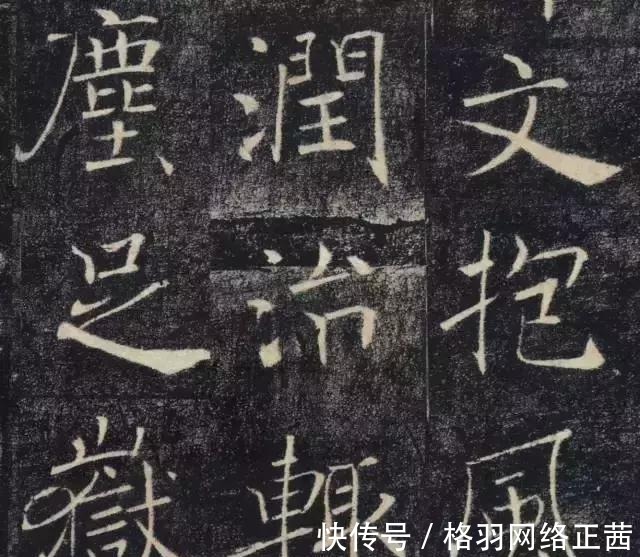 文抱風
潤治輒
塵足嶽
快传号 / 格羽网络正茜